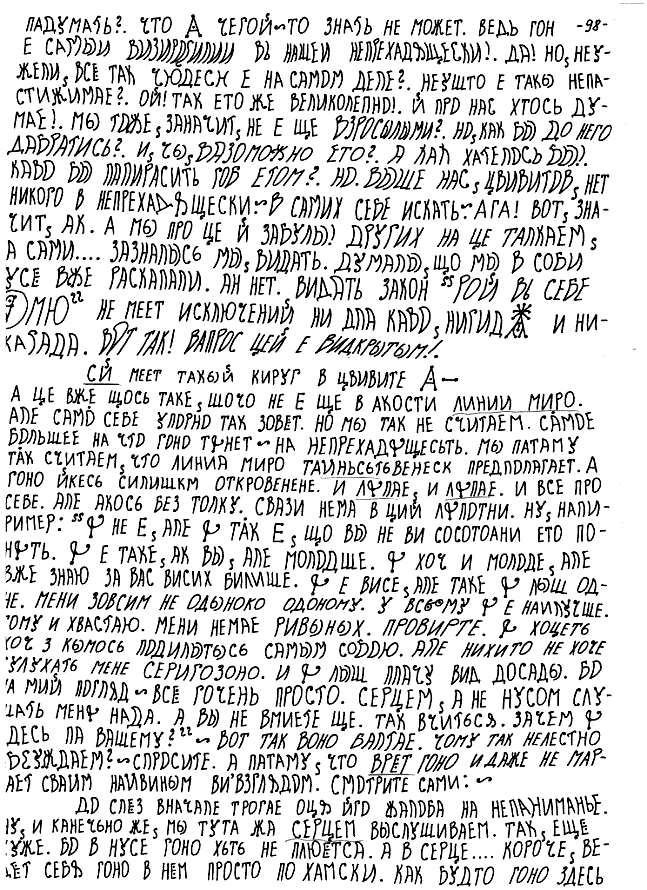 ПАДУМАТЬ?. ЧТО А ЧЕГОЙ~ТО ЗНАТЬ НЕ МОЖЕТ. ВЕДЬ ГОН -98-
Е САМЫЙ В НАШЕЙ ДА! НО, НЕУ-
ЖЕЛИ, ВСЕ ТАК ЧЮДЕСН Е НА САМОМ ДЕЛЕ?. НЕУШТО Е ТАКЫ НЕПА-
СТИЖИМАЕ?. ОЙ! ТАК ЕТО ЖЕ ВЕЛИКОЛЕПНО!. Й ПРО НАС ХТОСЬ ДУ-
МАЕ!. МЫ ТОЖЕ, ЗАНАЧИТ, НЕ Е ЩЕ ВЗРОСЫЛЫМИ?. НО, КАК БЫ ДО НЕГО
ДАБРАТИСЬ?. И, ЧЫ, ВАЗОМОЖНО ЕТО?. А КАК ХАТЕЛОСЬ БЫ!.
КАВО БЫ ПАПИРАСИТЬ ГОБ ЕТОМ?. НО. ВЫШЕ НАС, ЦВИВИТОВ, НЕТ
НИКОГО В В САМИХ СЕБЕ ИСКАТЬ~АГА! ВОТ, ЗНА-
ЧИТ, АК. А МЫ ПРО ЦЕ Й ЗАБУЛЫ! ДРУГИХ НА ЦЕ ТАЛКАЕМ,
А САМИ.... ЗАЗНАЛЫСЬ МЫ, ВИДАТЬ. ДУМАЛЫ, ЩО МЫ В СОБИ
УСЕ ВЖЕ РАСКАПАЛИ. АН НЕТ. ВИДАТЬ ЗАКОН "РОЙ ВЬ СЕБЕ
НЕ МЕЕТ ИСКЛЮЧЕНИЙ НИ ДЛА КАВО, И НИ-
КАГАДА. ВОТ ТАК! ВАПРОС ЦЕЙ Е ВИДКРЫТЫМ!.
СЙ МЕЕТ ТАКЫЙ КИРУГ В ЦВИВИТЕ А—
А ЦЕ ВЖЕ ЩОСЬ ТАКЕ, ШОЧО НЕ Е ЩЕ В АКОСТИ ЛИНИИ МИРО.
АЛЕ САМО СЕБЕ УПОРНО ТАК ЗОВЕТ. НО МЫ ТАК НЕ СЧИТАЕМ. САМОЕ
БОЛЬШЕЕ НА ЧТО ГОНО ТѰНЕТ~НА НЕПРЕХАДѰЩЕСЬТЬ. МЫ ПАТАМУ
ТАК СЧИТАЕМ, ЧТО ЛИНИА МИРО ТАИНЬСЬТЬВЕНЕСК ПРЕДПОЛАГАЕТ. А
ГОНО ЙКЕСЬ СИЛИШКМ ОТКРОВЕНЕНЕ. И ЛѰПАЕ, И ЛѰПАЕ. И ВСЕ ПРО
СЕБЕ. АЛЕ АКОСЬ БЕЗ ТОЛКУ. СВАЗИ НЕМА В ЦИЙ ЛѰПОТНИ. НУ, НАПИ-
РИМЕР: "Ѱ НЕ Е, АЛЕ Ѱ ТАК Е, ЩО ВЫ НЕ ВИ СОСОТОАНИ ЕТО ПО-
НѰТЬ. Ѱ Е ТАКЕ, АК ВЫ, АЛЕ МОЛОДШЕ. Ѱ ХОЧ И МОЛОДЕ, АЛЕ
ВЖЕ ЗНАЮ ЗА ВАС ВИСИХ БИЛИШЕ. Ѱ Е ВИСЕ, АЛЕ ТАКЕ Ѱ ЛЫШ ОД-
НЕ. МЕНИ ЗОВСИМ НЕ ОДЫНОКО ОДОНОМУ. У ВСЬОМУ Ѱ Е НАИЛУЧШЕ.
ТОМУ И ХВАСТАЮ. МЕНИ НЕМАЕ РИВЫНЫХ. ПРОВИРТЕ. Ѱ ХОЦЕТЬ
ХОЧ З КЫМОСЬ ПОДИЛЫТЫСЬ САМЫМ СОБОЮ. АЛЕ НИХИТО НЕ ХОЧЕ
УЛУХАТЬ МЕНЕ СЕРИГОЗОНО. И Ѱ ЛЫШ ПЛАЧУ ВИД ДОСАДЫ. БО
НА МИЙ ПОГЛЯД~ВСЕ ГОЧЕНЬ ПРОСТО. СЕРЦЕМ, А НЕ НУСОМ СЛУ-
ШАТЬ МЕНѰ НАДА. А ВЫ НЕ ВМИЕТЕ ЩЕ. ТАК ВЧИТЬСЯ. ЗАЧЕМ Ѱ
ЗДЕСЬ ПА ВАШЕМУ?"~ВОТ ТАК ВОНО БАЛТАЕ. ЧОМУ ТАК НЕЛЕСТНО
ОБСУЖДАЕМ?~СПРОСИТЕ. А ПАТАМУ, ЧТО ВРЕТ ГОНО И ДАЖЕ НЕ МАР-
ГАЕТ СВАИМ НАИВИНЫМ ВИ'ВЗГЛЯДОМ. СМОТРИТЕ САМИ:~
ДО СЛЕЗ ВНАЧАЛЕ ТРОГАЕ ОЦЯ ЙГО ЖАЛОБА НА НЕПАНИМАНЬЕ.
НУ, И КАНЕЧЬНО ЖЕ, МЫ ТУТА ЖА СЕРЦЕМ ВЫСЛУШИВАЕМ. ТАК, ЕЩЕ
ХУЖЕ. БО В НУСЕ ГОНО ХЬТЬ НЕ ПЛЮЕТСА. А В СЕРЦЕ.... КОРОЧЕ, ВЕ-
ДЕТ СЕБЯ ГОНО В НЕМ ПРОСТО ПО ХАМСКИ. КАК БУДТО ГОНО ЗДЕСЬ